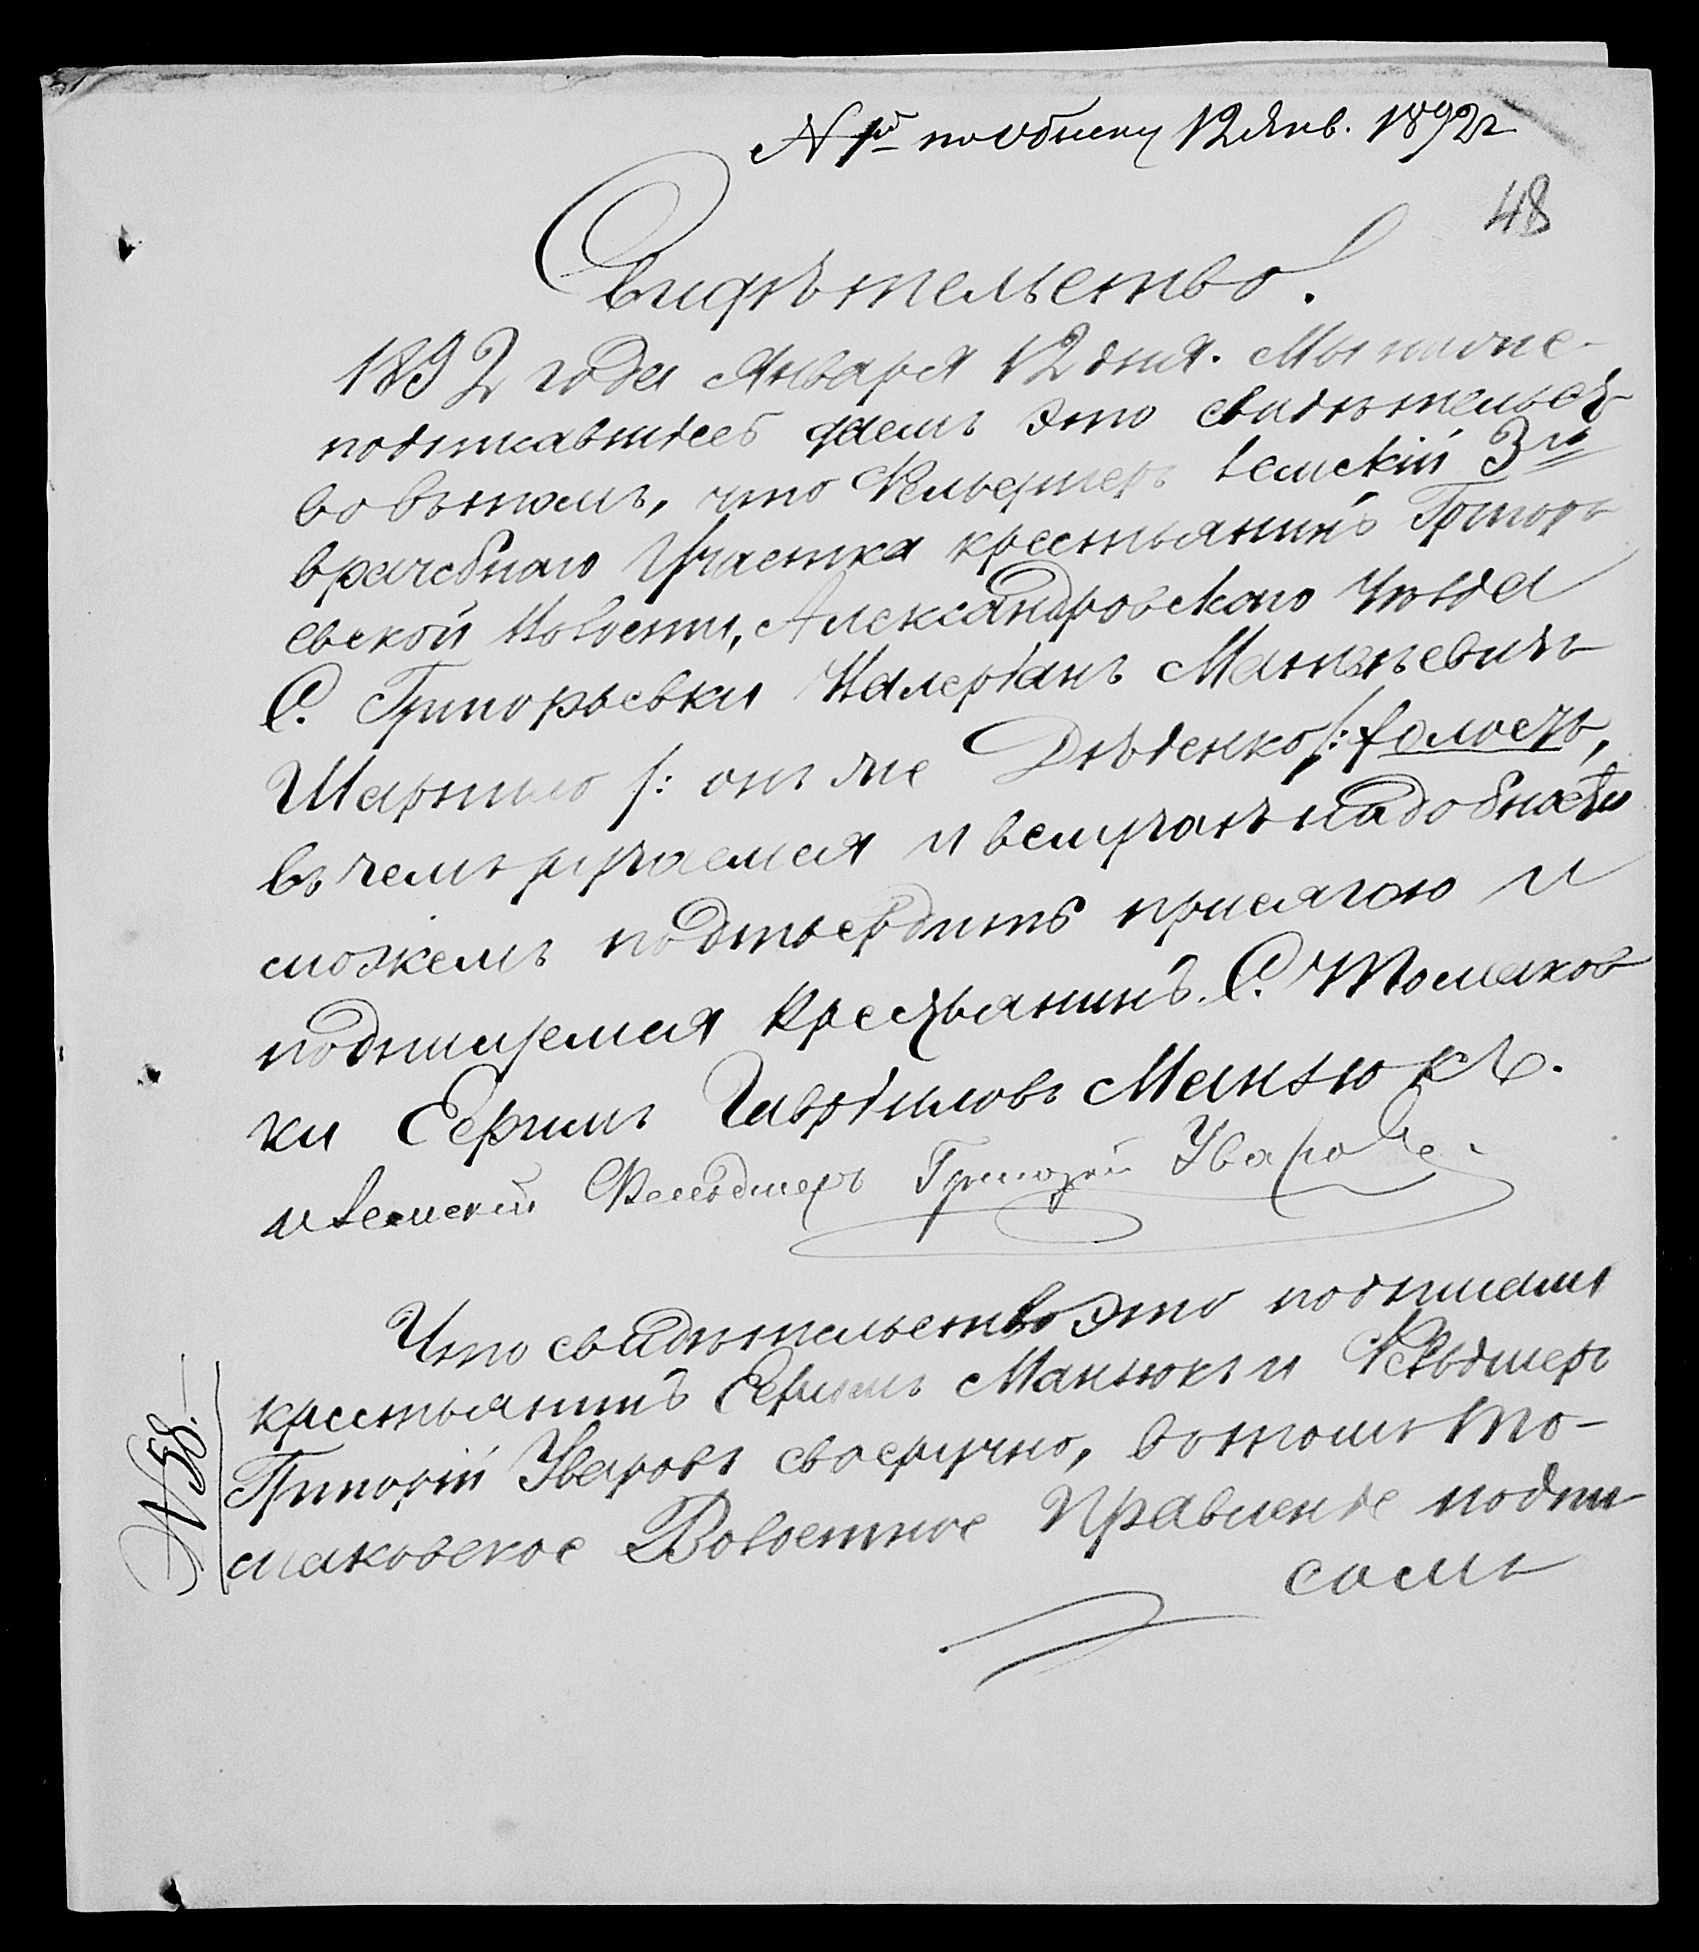 N 1й по обыску 12 Янв. 1892 г
48
Свидѣтельство.
1892 года Января 12 дня. Мы ниже-
подписавшіеся даемъ это свидѣтельст
во въ томъ, что Фельдшеръ Земскій 3го
врачебнаго Участка крестьянинъ Григорь
евской Волости, Александровскаго Уѣзда
С. Григорьевки Валеріанъ Матвѣевичъ
Шарпило /: онъ же Дѣденко /: холостъ,
въ чемъ ручаемся и въ случаѣ надобности
можемъ подтвердить присягою и
подпишемся Крестьянинъ С. Томаков
ки Ефимъ Гавріиловъ Манзюкъ.
и Земскій Фельдшеръ Григорій Уваровъ
Что свидѣтельство это подписали
крестьянинъ Ефимъ Манзюкъ и Фельдшеръ
Григорій Уваровъ своеручно, въ томъ То-
маковское Волостное Правленіе подпи
сомъ
N 58.